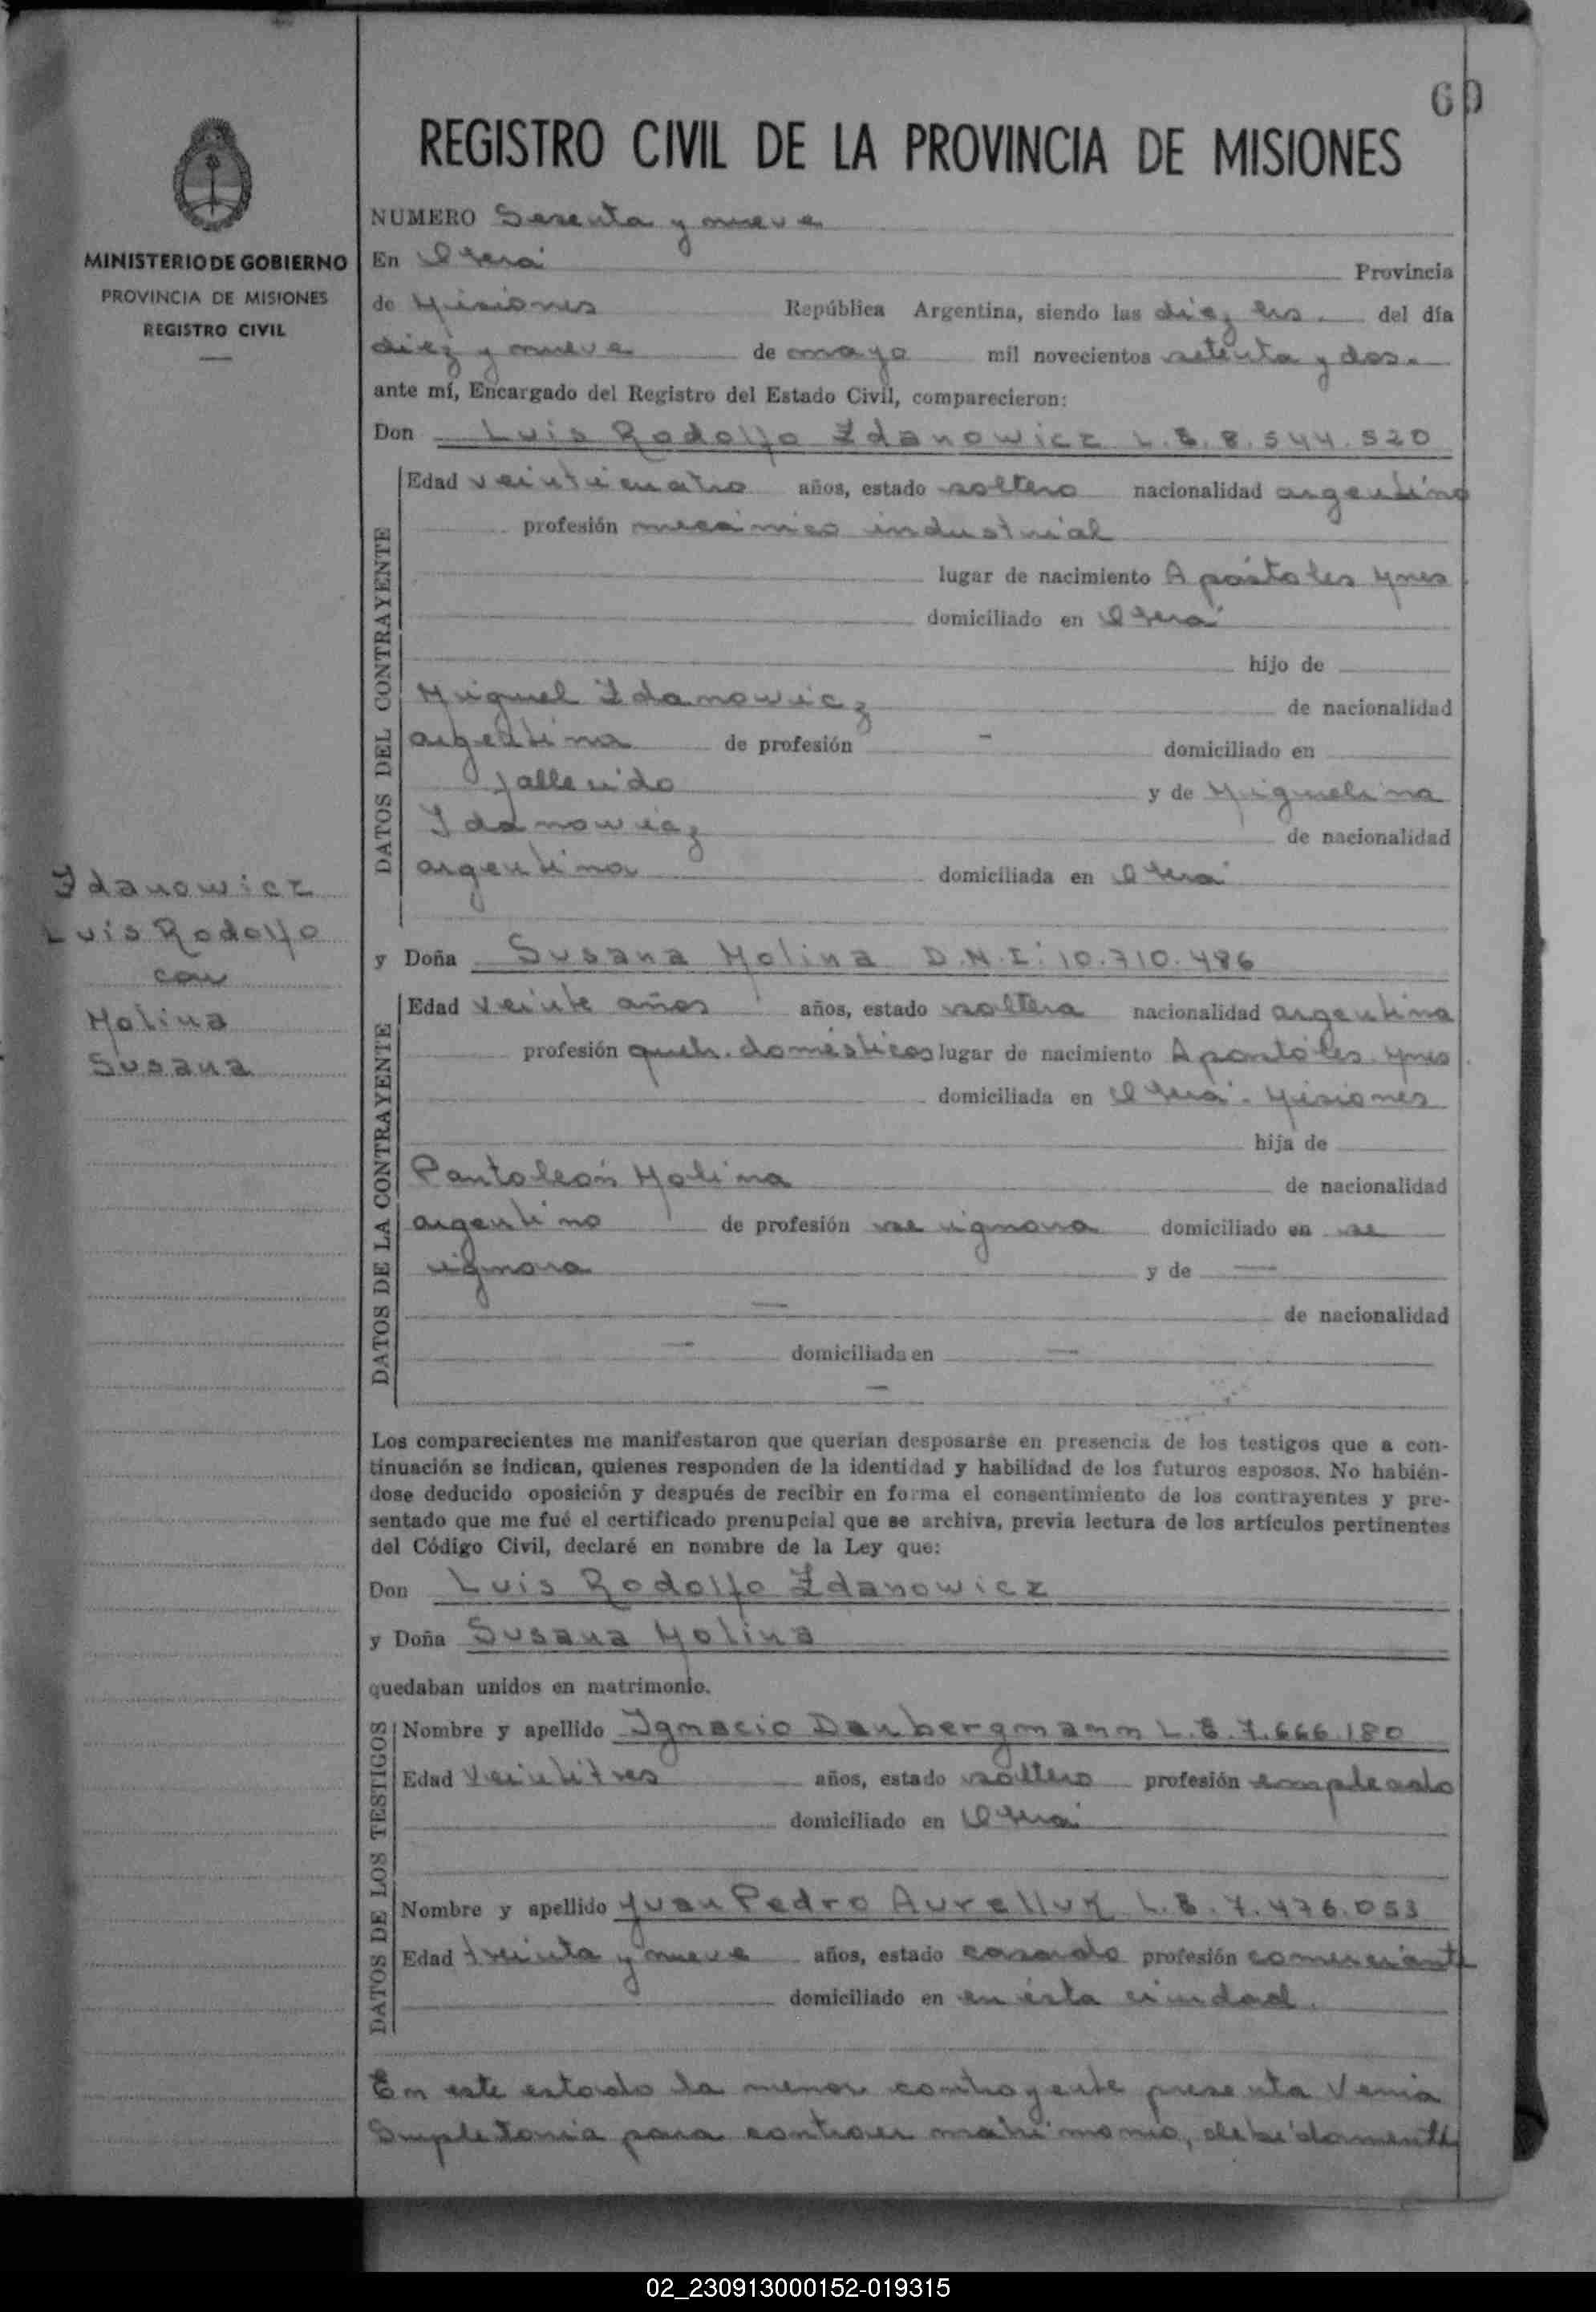 69
REGISTRO CIVIL DE LA PROVINCIA DE MISIONES
MINISTERIO DE GOBIERNO
PROVINCIA DE MISIONES
REGISTRO CIVIL
NUMERO Sesenta y nueve
En Oberá Provincia
de Misiones República Argentina, siendo las diez hs. del día
diez y nueve de mayo mil novecientos setenta y dos.
ante mí, Encargado del Registro del Estado Civil, comparecieron:
Don Luis Rodolfo Zdanowicz L.E. 8.544.520
DATOS DEL CONTRAYENTE
Edad veinticuatro años, estado soltero nacionalidad argentino
profesión mecánico industrial
lugar de nacimiento Apóstoles Mnes
domiciliado en Oberá
hijo de
Miguel Zdanowicz de nacionalidad
argentina de profesión - domiciliado en
fallecido y de Miguelina
Zdanowicz de nacionalidad
argentina domiciliada en Oberá
Zdanowicz
Luis Rodolfo
con
Molina
Susana
y Doña Susana Molina D.N.I: 10.710.486
DATOS DE LA CONTRAYENTE
Edad veinte años años, estado soltera nacionalidad argentina
profesión queh. domésticos lugar de nacimiento Apóstoles. Mnes.
domiciliada en Oberá. Misiones
hija de
Pantaleón Molina de nacionalidad
argentino de profesión se ignora domiciliado en se
ignora y de —
— de nacionalidad
— domiciliada en —
—
Los comparecientes me manifestaron que querían desposarse en presencia de los testigos que a con-
tinuación se indican, quienes responden de la identidad y habilidad de los futuros esposos. No habién-
dose deducido oposición y después de recibir en forma el consentimiento de los contrayentes y pre-
sentado que me fué el certificado prenupcial que se archiva, previa lectura de los artículos pertinentes
del Código Civil, declaré en nombre de la Ley que:
Don Luis Rodolfo Zdanowicz
y Doña Susana Molina
quedaban unidos en matrimonio.
DATOS DE LOS TESTIGOS
Nombre y apellido Ignacio Daubergmann L.E. 7.666.180
Edad Veintitres años, estado soltero profesión empleado
domiciliado en Oberá
Nombre y apellido Juan Pedro Aurelluk L.E. 7.476.053
Edad treinta y nueve años, estado casado profesión comerciante
domiciliado en en ésta ciudad.
En este estado la menor contrayente presenta Venia
Supletoria para contraer matrimonio, debidamente
02_230913000152-019315